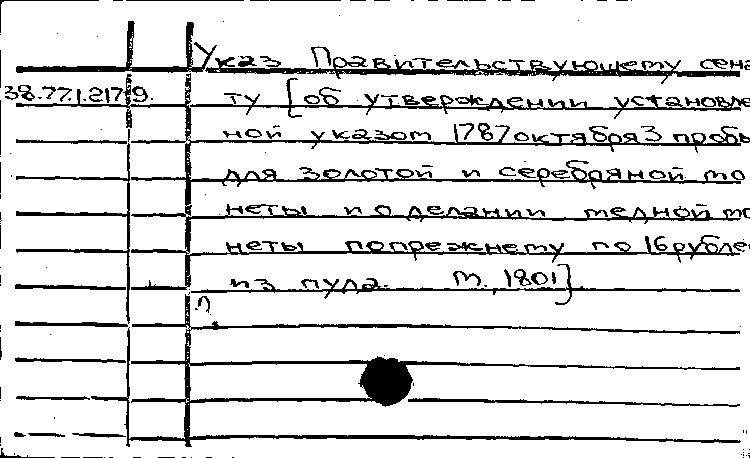 Указ Правительствующему сена
38.77.1.217 9. ту [об утверждении установле
ной указом 1787 октября 3 пробы
для золотой и серебряной мо
неты и о делании медной мо
неты попрежнему по 16 рубле
из пуда. М., 1801].